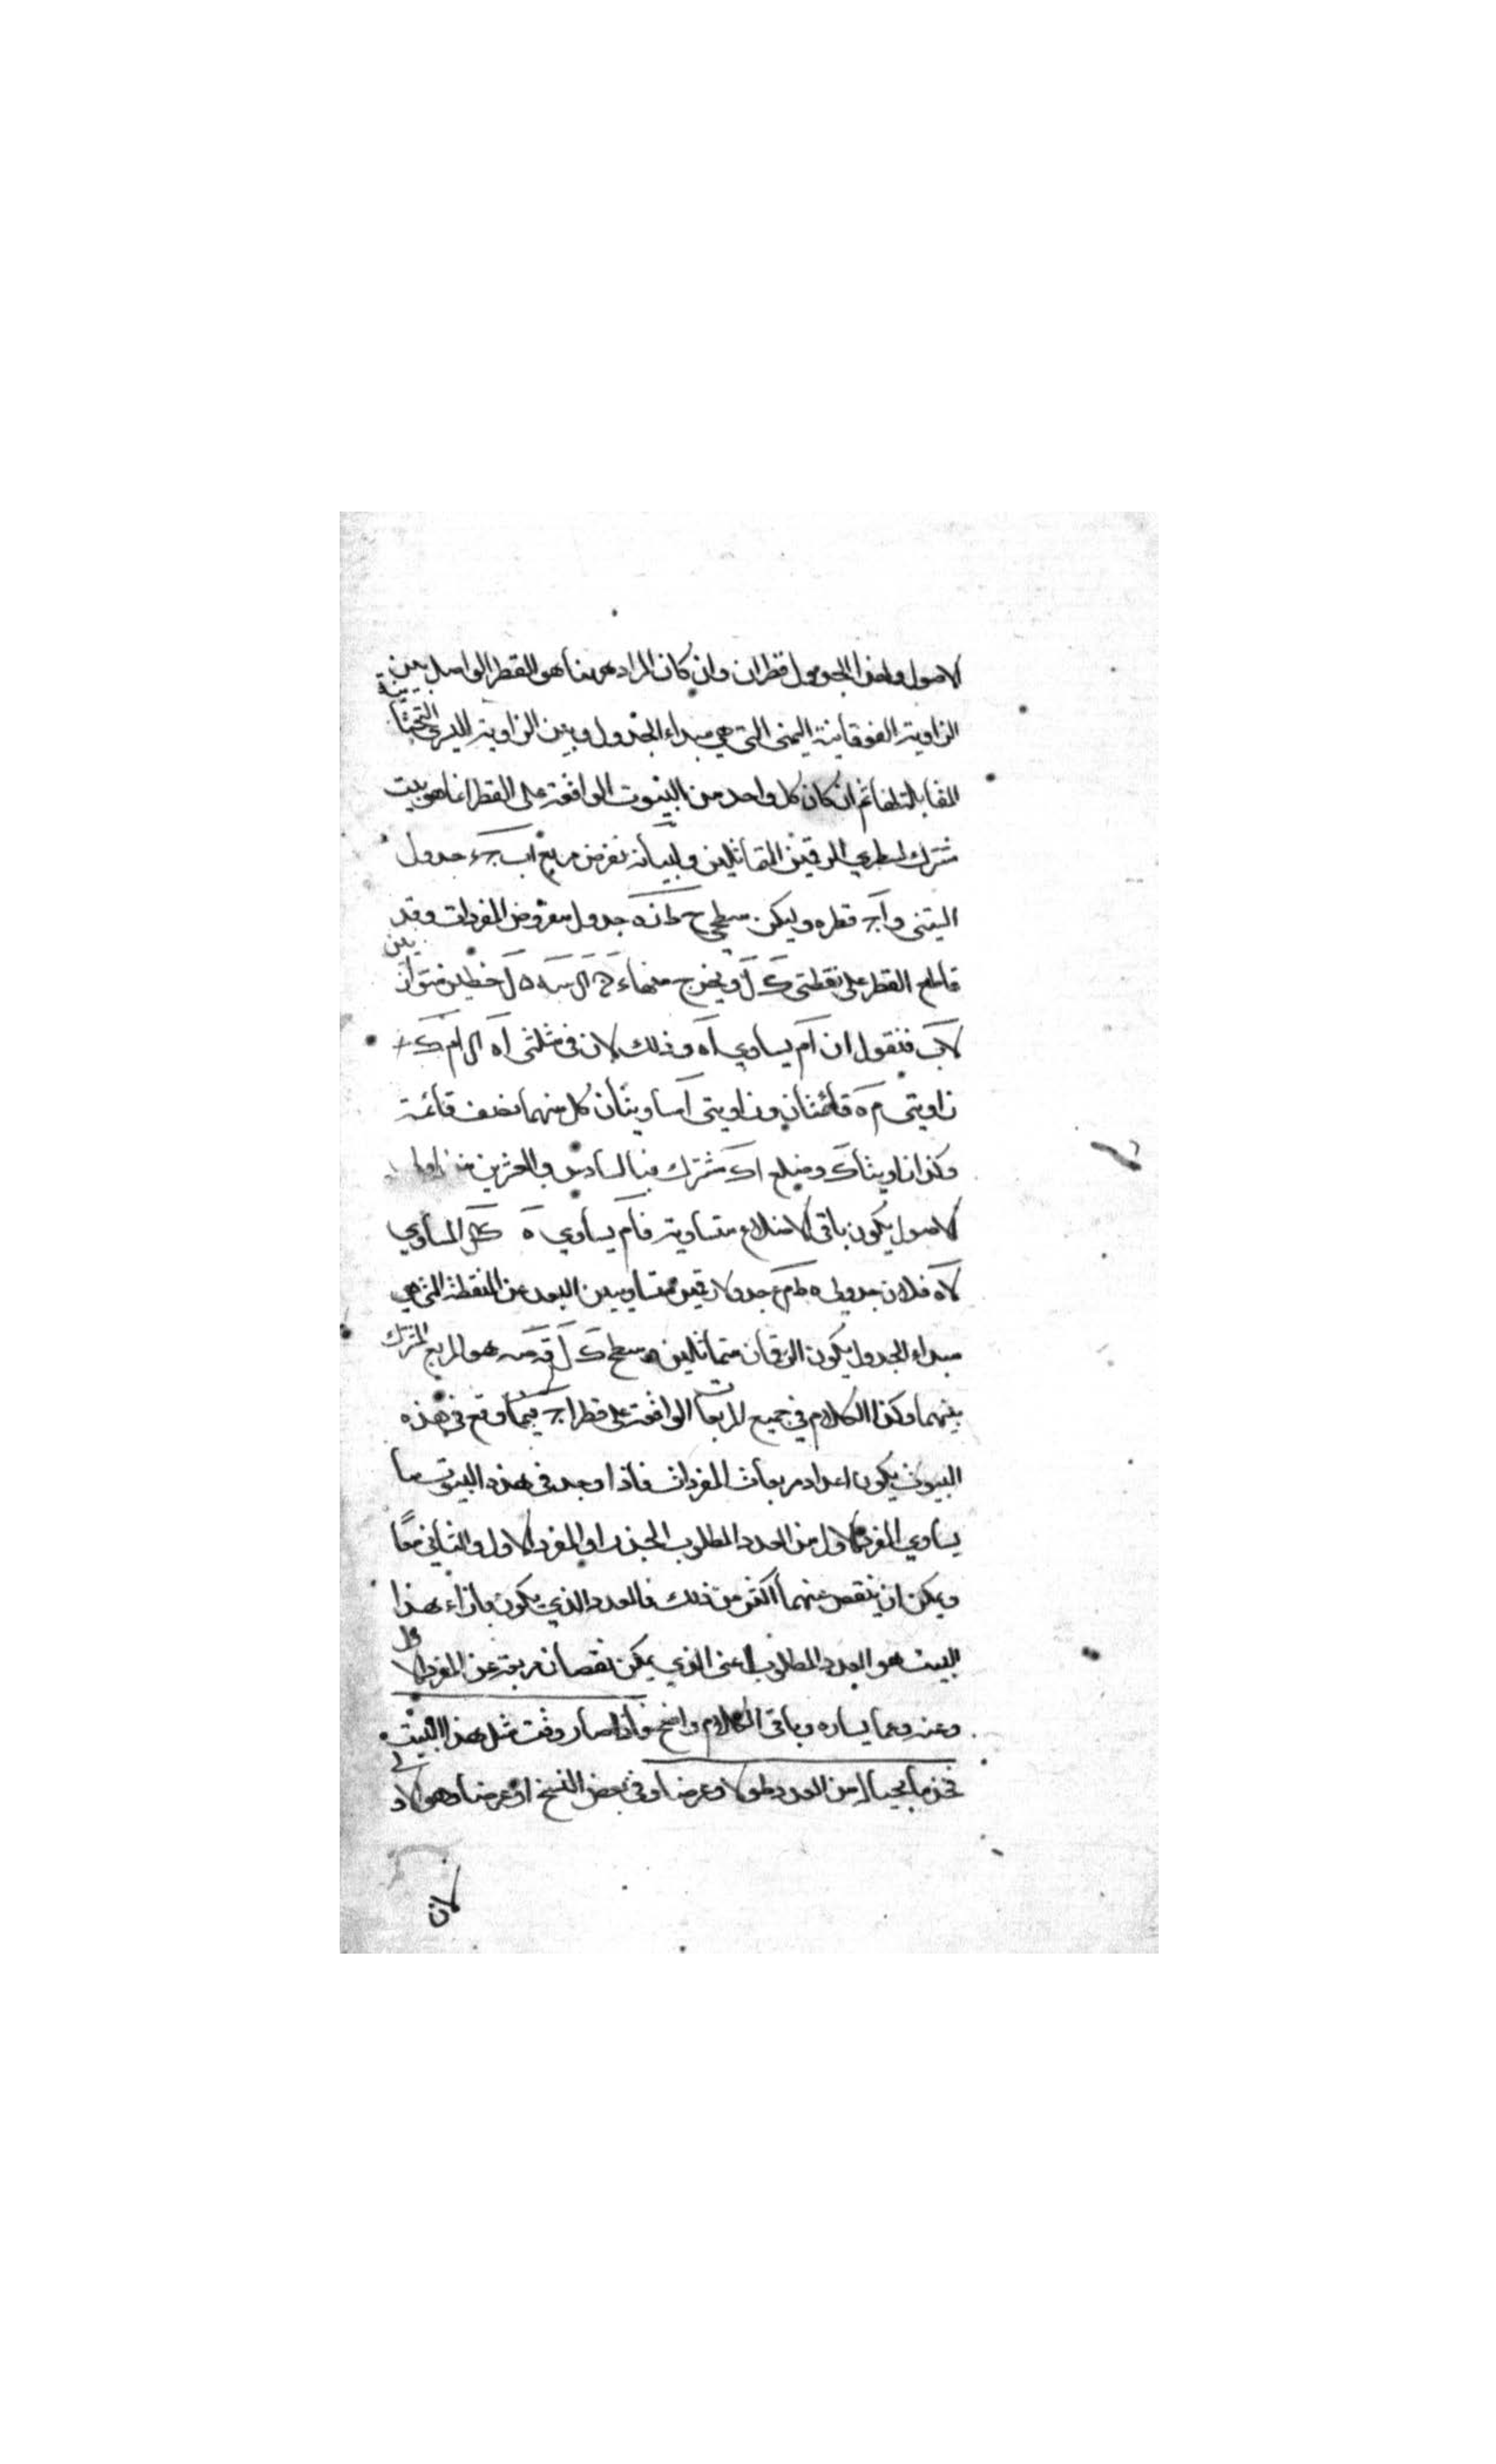 الاصول ولهذا الجدول قطران وان كان المراد ههنا هو القطر الواصل بين
الزاوية الفوقانية اليمنى التي هي مبداء الجدول وبين الزاوية اليسرى التحتانية
المقابلة لها ثم ان كان كل واحد من البيوت الواقعة على القطر انما هو بيت
مشترك لسطري الرقمين المتماثلين ولبيانه نفرض مربع اب جـء جدول
الستيني واجـ قطره وليكن سطح ح ط جدول مفروض المفردات وقد
قاطع القطر على نقطتي ك ل ويخرج منهما خطين متوازيين
لاب فنقول ان ام يساوي اه وذلك لان في مثلثي اه ك ام ك
زاويتي م ه قائمتان وزاويتي ا متساويتان كل منهما نصف قائمة
وكذا زاويتا ك وضلع اك مشترك فبالسادس والعشرين من اولى
الاصول يكون باقي الاضلاع متساوية فام يساوي ه ك المساوي
لاه فلان جدولي جدولا رقمين متساويين البعد عن النقطة التي هي
مبداء الجدول يكون الرقمان متماثلين وسطح ك ل هو المربع المشترك
بينهما وكذا الكلام في جميع المربعات الواقعة على قطر اجـ فيما وقع في هذه
البيوت يكون اعداد مربعات المفردات فاذا وجد في هذه البيوت ما
يساوي المفرد الاول من العدد المطلوب الجذر او المفرد الاول والثاني معًا
ويمكن ان ينقص منهما اكثر من ذلك فالعدد الذي يكون بازاء هذا
البيت هو العدد المطلوب اعني الذي يمكن نقصان مربعه عن المفرد الاول
وعنه وعما يساره وباقي الكلام واضح فاذا صادفت مثل هذا البيت
فخذ ما بحياله من العدد طولا وعرضا وفي بعض النسخ او عرضا وهو الاولى
لان